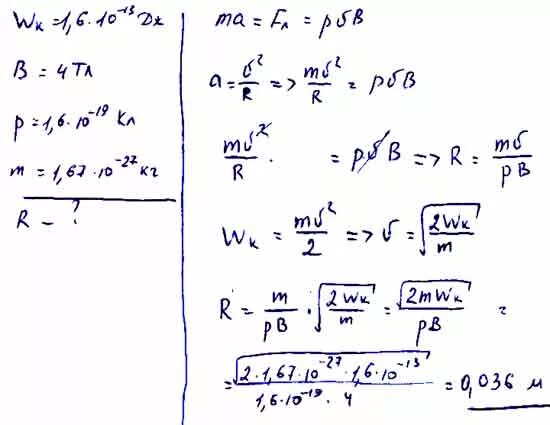 Wк = 1,6·10⁻¹³ Дж
B = 4 Тл
p = 1,6·10⁻¹⁹ Кл
m = 1,67·10⁻²⁷ кг
R – ?
ma = Fл = pσB
a = σ²/R => mσ²/R = pσB
mσ²/R · = pσB => R = mσ/pB
Wк = mσ²/2 => σ = √(2Wк/m)
R = m/pB · √(2Wк/m) = √(2mWк)/pB =
= √(2·1,67·10⁻²⁷·1,6·10⁻¹³)/(1,6·10⁻¹⁹·4) = 0,036 м